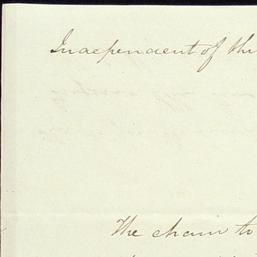 Independent of the
The chain to